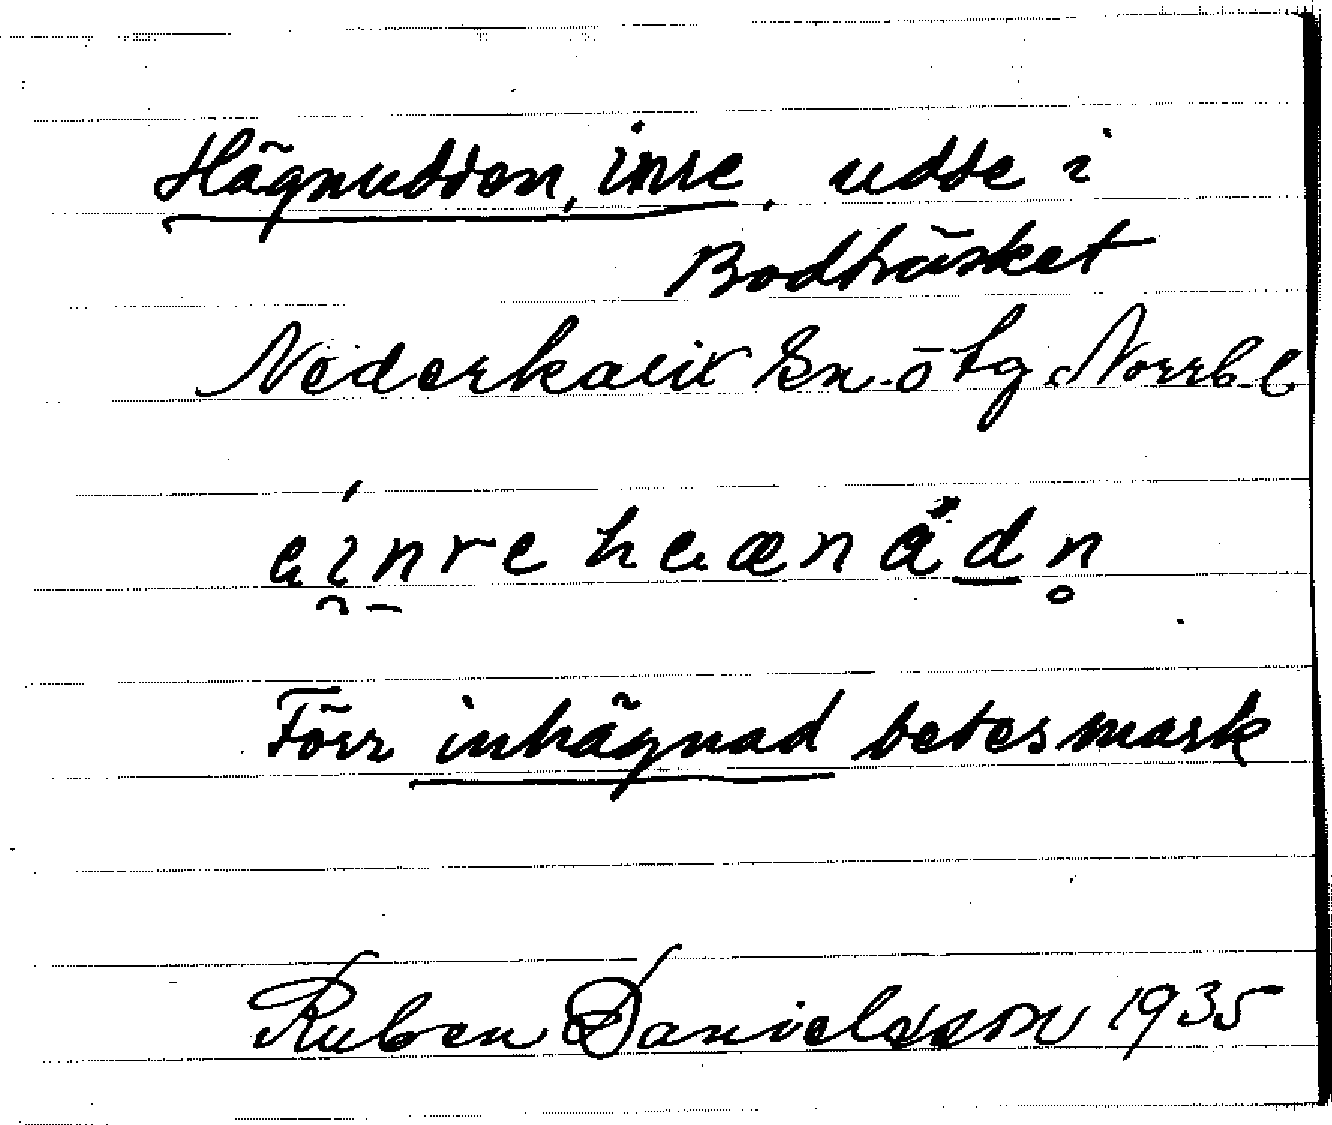 Hägnudden, inre, udde i
Bodträsket
Nederkalix sn. ö tg Norrb. l
Förr inhägnad betesmark
Ruben Danielsson 1935